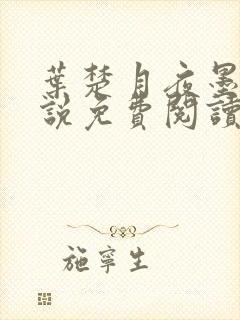 葉楚月夜墨
說免費閱讀
施寧生